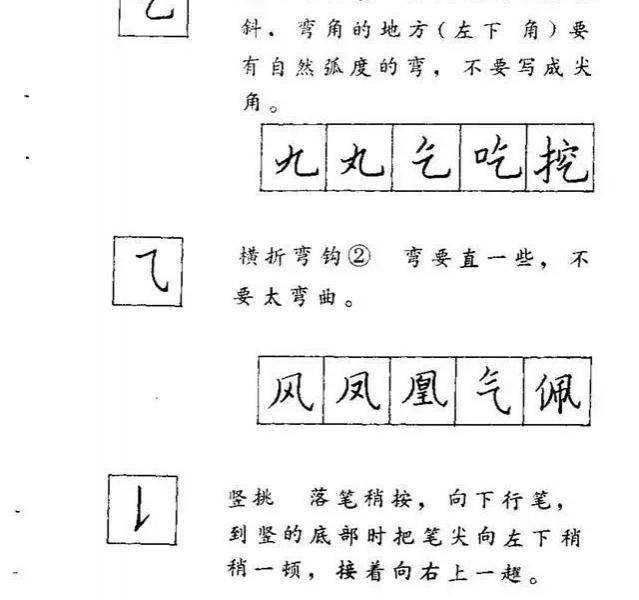 斜．弯角的地方（左下 角）要
有自然弧度的弯，不要写成尖
角。
九丸乞吃挖
横折弯钩② 弯要直一些，不
要太弯曲。
风凤凰气佩
竖挑 落笔稍按，向下行笔，
到竖的底部时把笔尖向左下稍
稍一顿，接着向右上一趯。